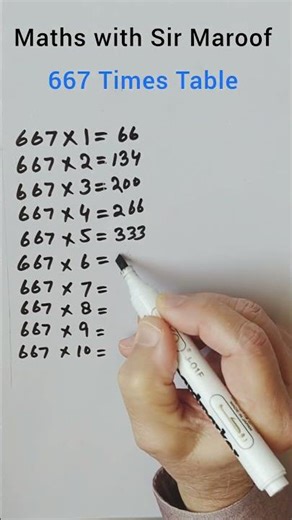 Maths with Sir Maroof
667 Times Table
667 x 1 = 66
667 x 2 = 134
667 x 3 = 200
667 x 4 = 266
667 x 5 = 333
667 x 6 =
667 x 7 =
667 x 8 =
667 x 9 =
667 x 10 =